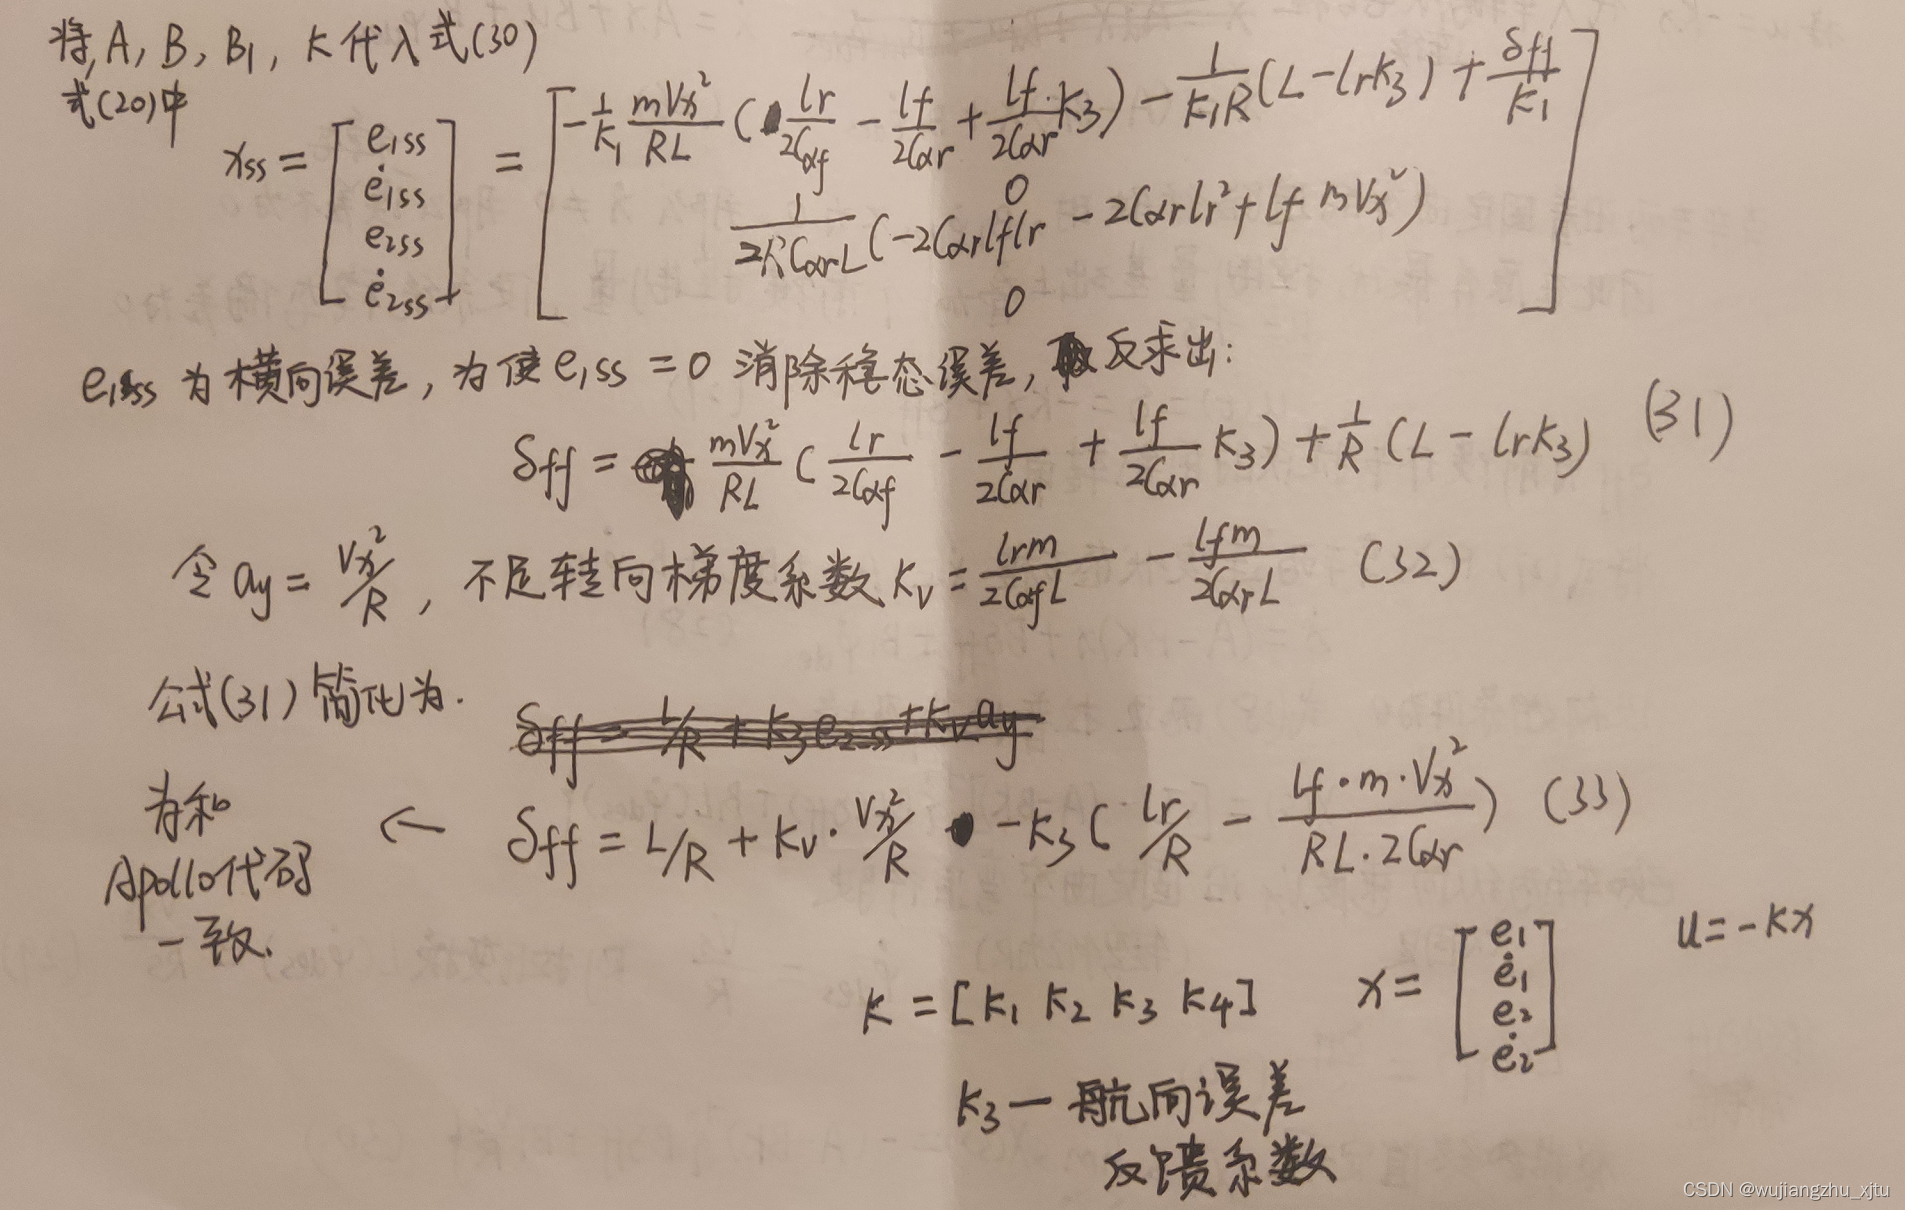 将A, B, B₁, K代入式(30)
式(20)中
xss = [e₁ss ė₁ss e₂ss ė₂ss] = [-1/K₁ mVx²/RL (lr/2Cαf - lf/2Cαr + lf·/2Cαr K₃) - 1/K₁R (L-lrK₃) + δff/K₁
0
1/2RCαrL (-2Cαrlflr - 2Cαrlr² + lf mVx²)
0]
e₁ss 为横向误差, 为使e₁ss = 0 消除稳态误差, 反求出:
δff = mVx²/RL (lr/2Cαf - lf/2Cαr + lf/2Cαr K₃) + 1/R (L - lrK₃) (31)
令 ay = Vx²/R, 不足转向梯度系数 Kv = lrm/2CαfL - lfm/2CαrL (32)
公式(31)简化为.
δff = L/R + K₃e₂ss + Kv ay
为和
Apollo代码
一致.
← δff = L/R + Kv · Vx²/R - K₃ ( lr/R - lf·m·Vx²/RL·2Cαr ) (33)
K = [K₁ K₂ K₃ K₄] x = [e₁ ė₁ e₂ ė₂] u = -Kx
K₃ — 航向误差
反馈系数
CSDN @wujiangzhu_xjtu